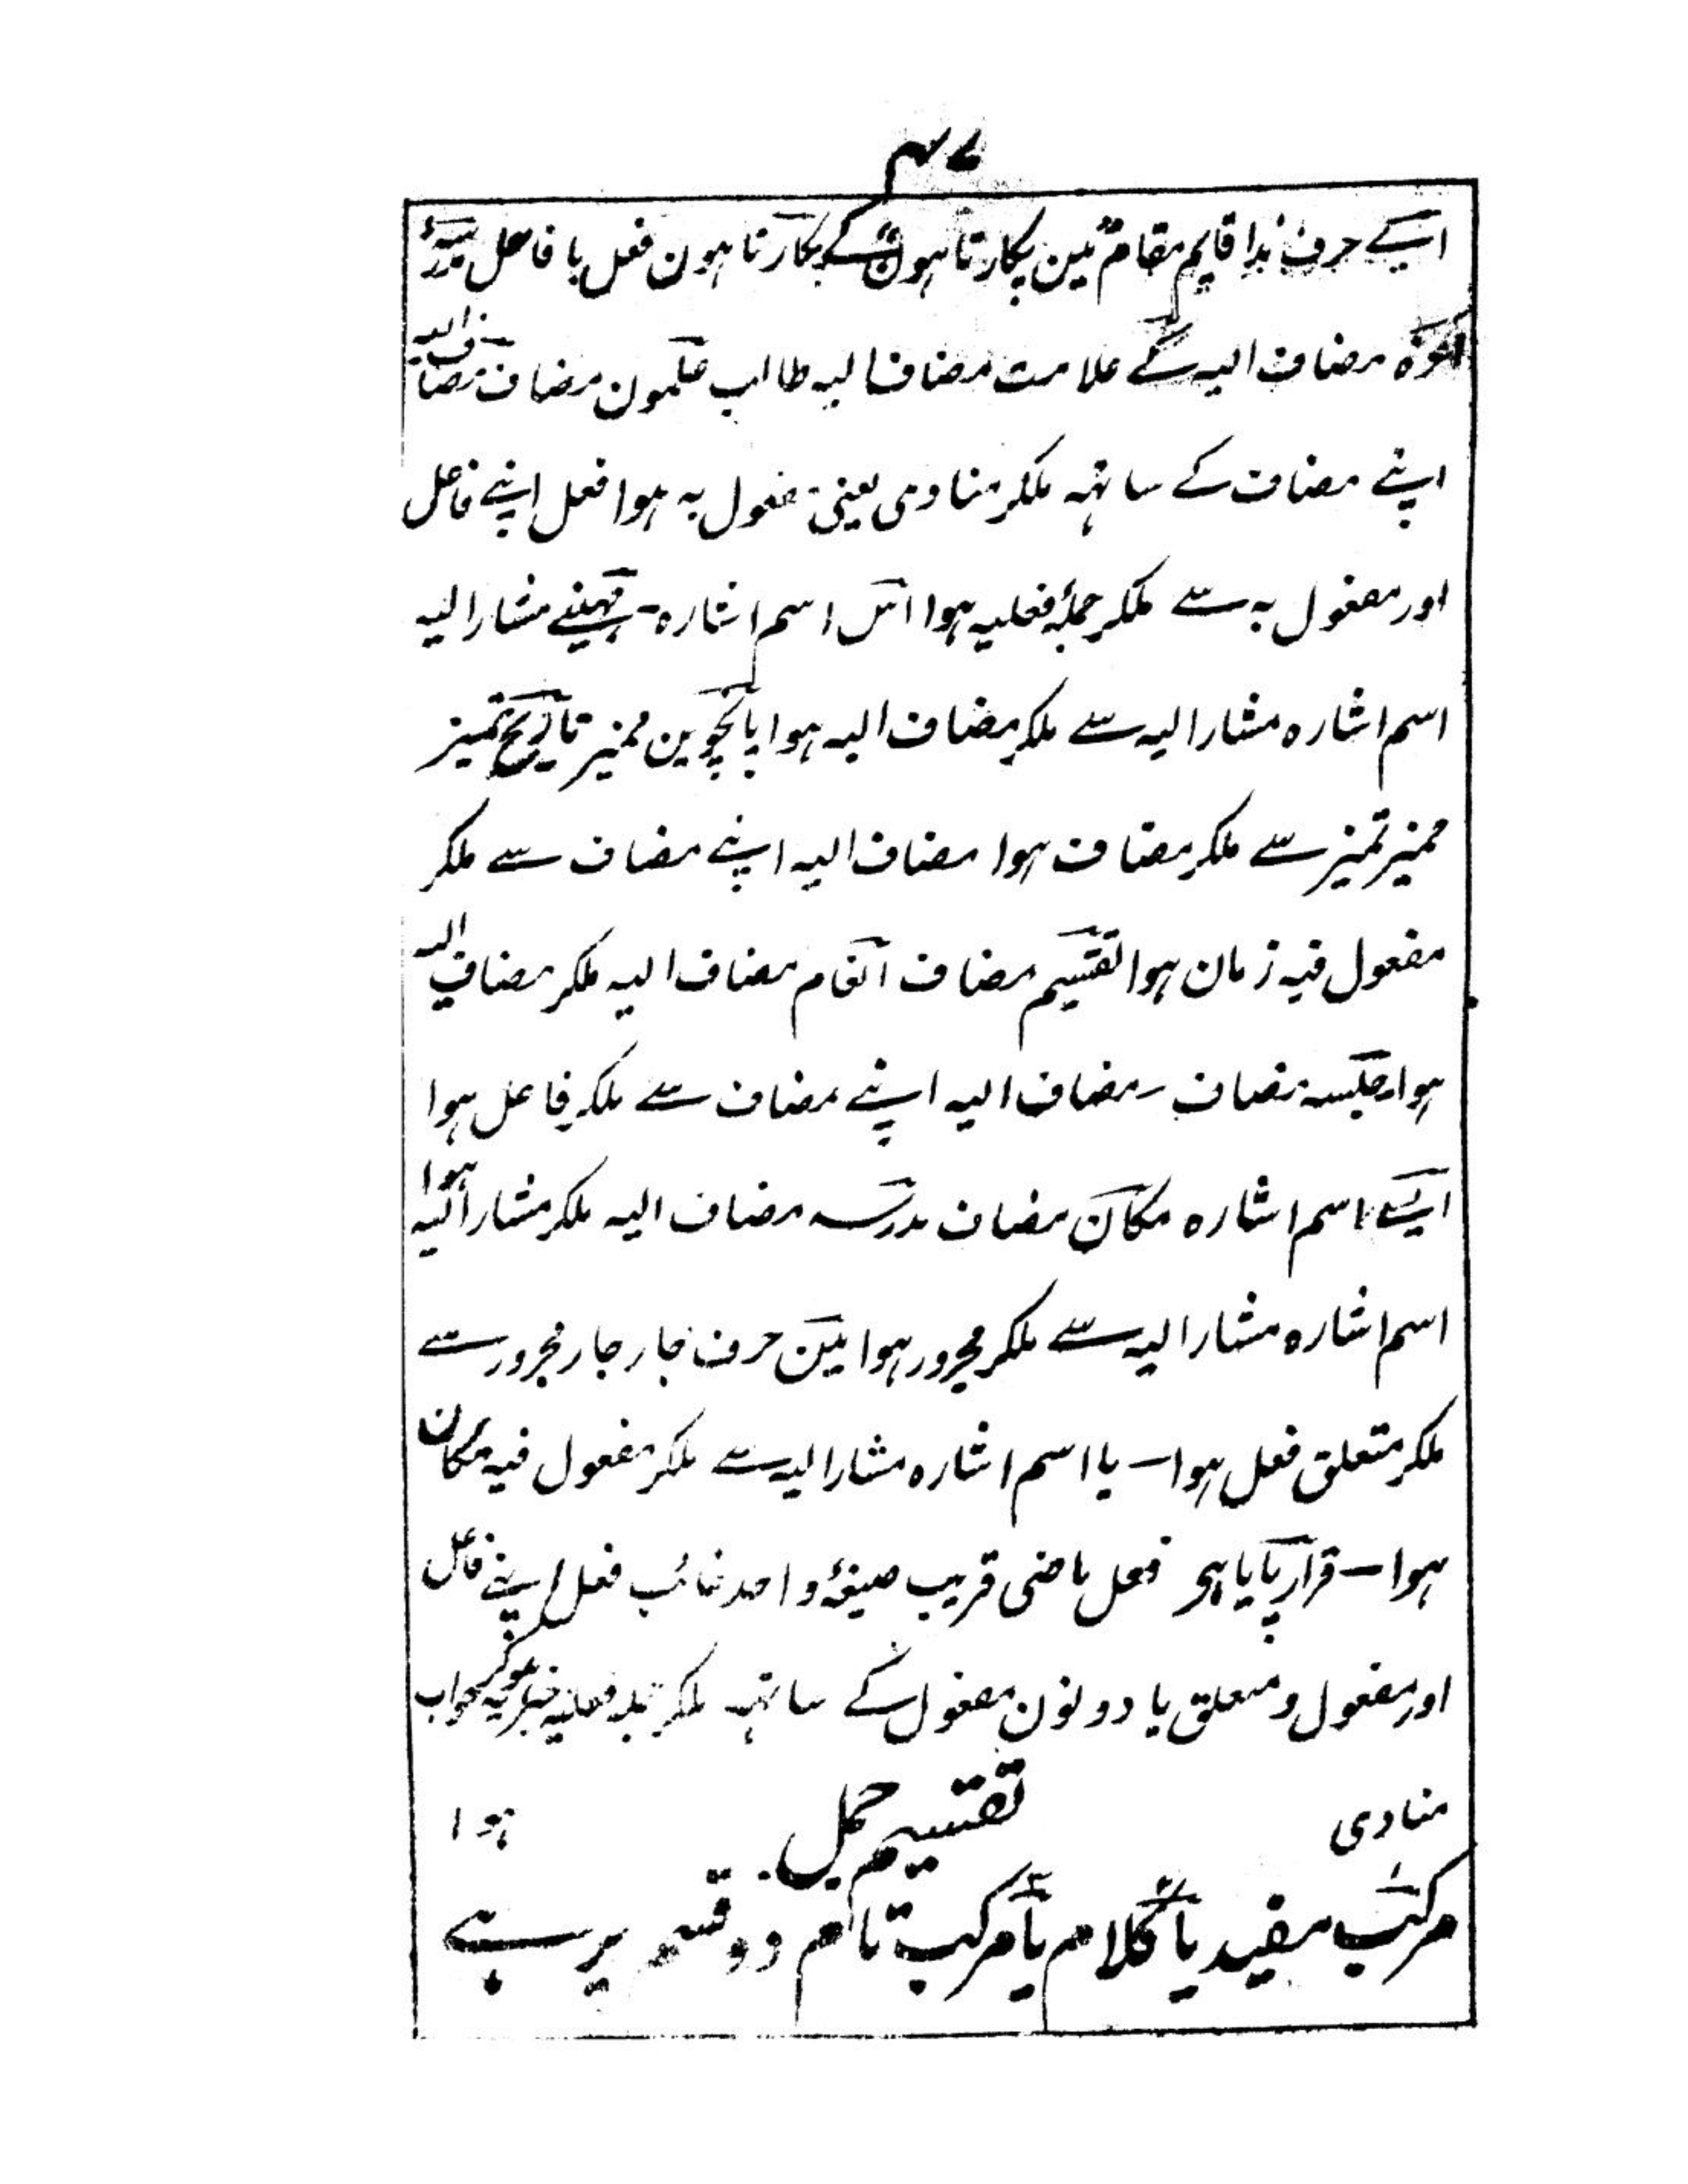 ۴۷
اسکے حرف ندا قایم مقام مین پکارتا ہون کے پکارتا ہون فعل با فاعل
مضاف الیہ کے علامت مضاف الیہ طالب علمون مضاف مضاف الیہ
اپنے مضاف کے ساتہہ ملکر منادی یعنی مفعول بہ ہوا فعل اپنے فاعل
اور مفعول بہ سے ملکر جملۂ فعلیہ ہوا اس اسم اشارہ - مہینے مشار الیہ
اسم اشارہ مشار الیہ سے ملکر مضاف الیہ ہوا پانچوین ممیز تاریخ تمیز
ممیز تمیز سے ملکر مضاف ہوا مضاف الیہ اپنے مضاف سے ملکر
مفعول فیہ زمان ہوا تقسیم مضاف انعام مضاف الیہ ملکر مضاف الیہ
ہوا جلسہ مضاف - مضاف الیہ اپنے مضاف سے ملکر فاعل ہوا
اسم اشارہ مکان مضاف مدرسہ مضاف الیہ ملکر مشار الیہ ہوا
اسم اشارہ مشار الیہ سے ملکر مجرور ہوا مین حرف جار جار مجرور سے
ملکر متعلق فعل ہوا - یا اسم اشارہ مشار الیہ سے ملکر مفعول فیہ مکان
ہوا - قرار پایا ہی فعل ماضی قریب صیغۂ واحد غائب فعل اپنے فاعل
اور مفعول و متعلق یا دونون مفعول کے ساتہہ ملکر جملہ فعلیہ خبریہ ہوکر جواب
منادی ہوا
تقسیم جمل
مرکب مفید یا کلام یا مرکب تام دو قسم پر ہے